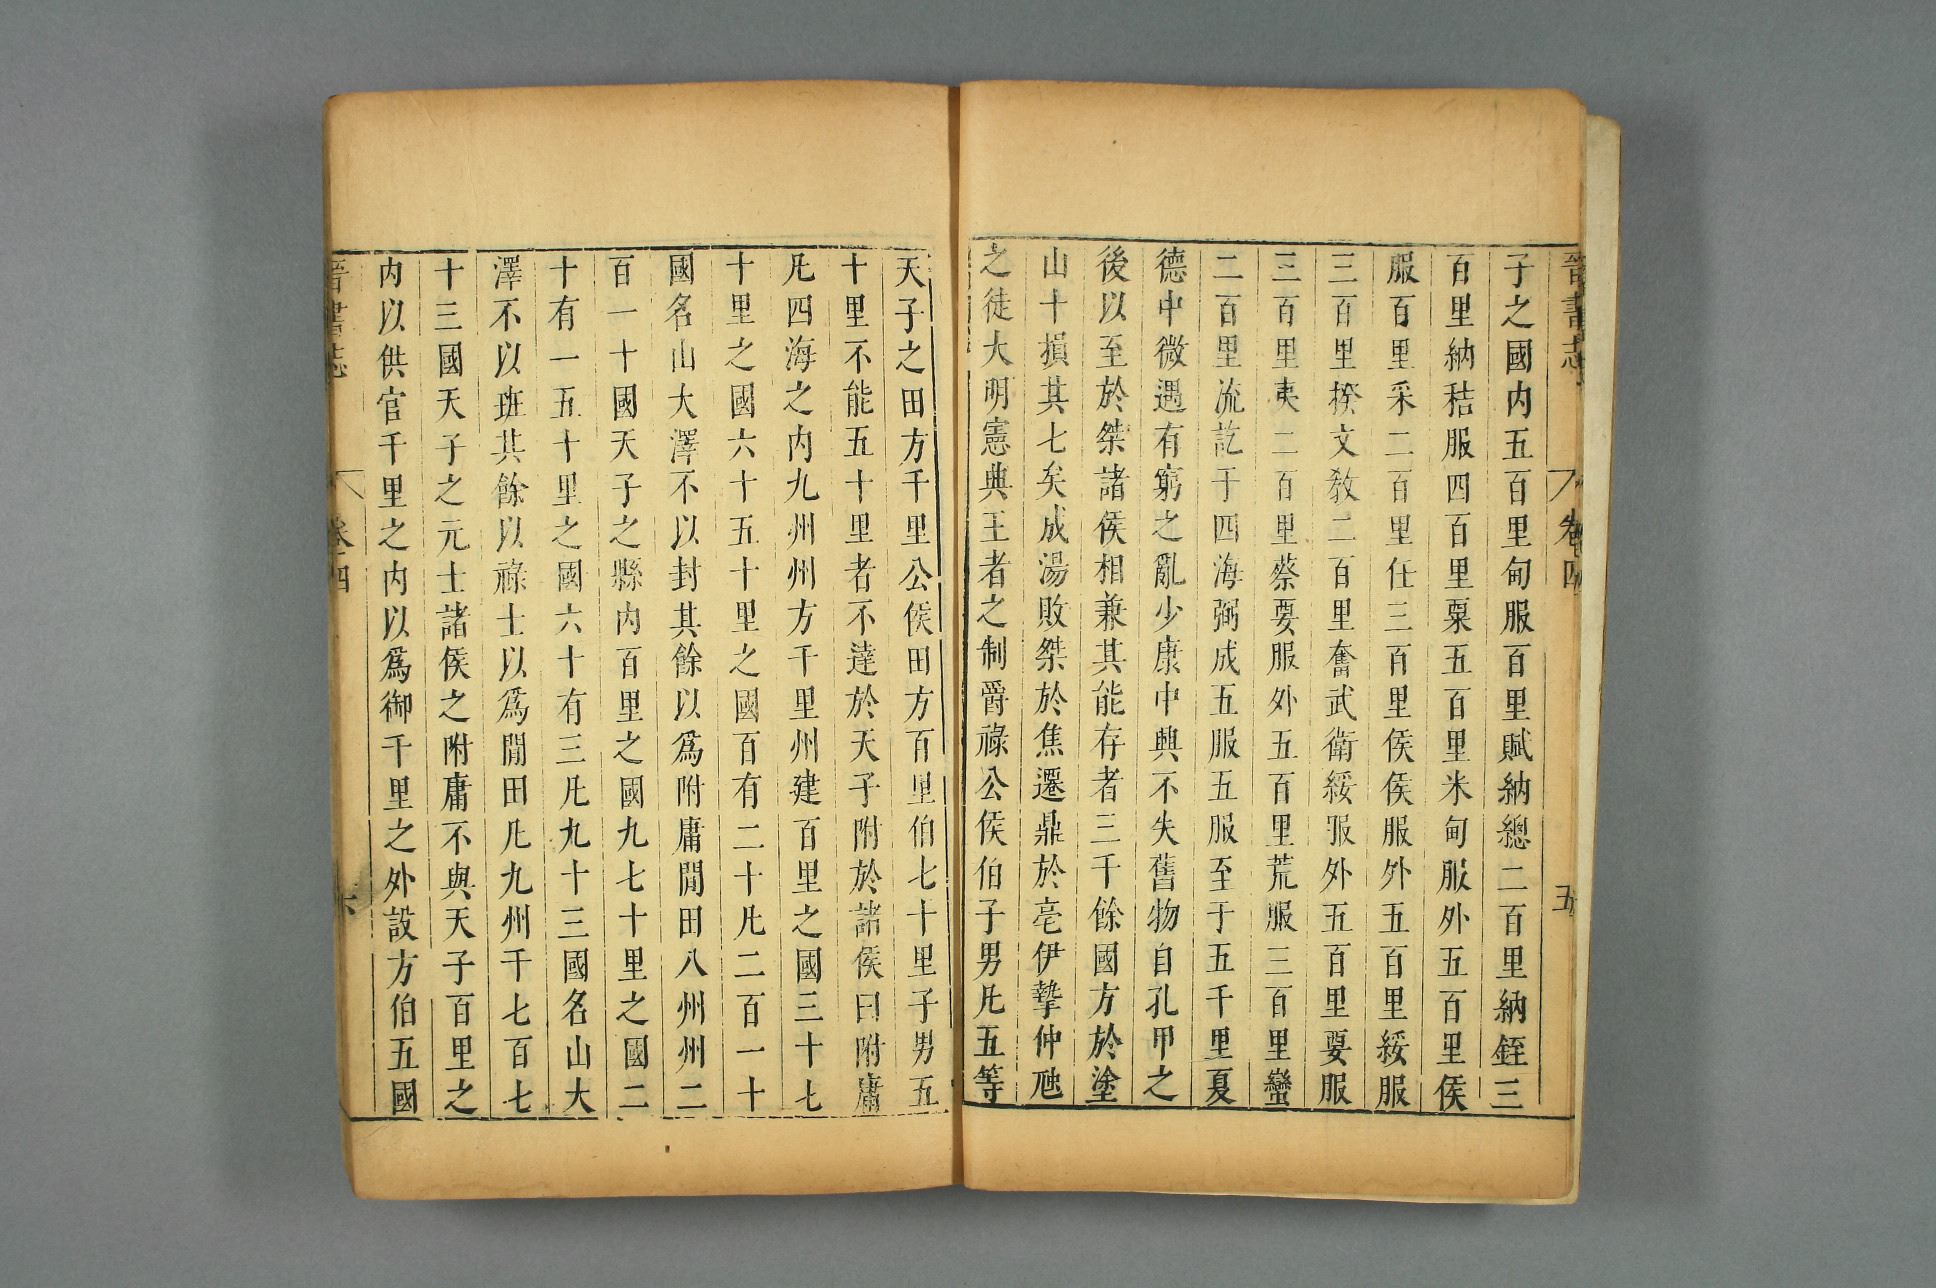 晉書志 卷四 五
子之國内五百里甸服百里賦納緫二百里納銍三
百里納秸服四百里粟五百里米甸服外五百里侯
服百里采二百里任三百里侯侯服外五百里綏服
三百里揆文敎二百里奮武衛綏服外五百里要服
三百里夷二百里蔡要服外五百里荒服三百里蠻
二百里流訖于四海弼成五服五服至于五千里夏
德中微遇有窮之亂少康中興不失舊物自孔甲之
後以至於桀諸侯相兼其能存者三千餘國方於塗
山十損其七矣成湯敗桀於焦遷鼎於亳伊摯仲虺
之徒大明憲典王者之制爵祿公侯伯子男凡五等
天子之田方千里公侯田方百里伯七十里子男五
十里不能五十里者不達於天子附於諸侯曰附庸
凡四海之内九州州方千里州建百里之國三十七
十里之國六十五十里之國百有二十凡二百一十
國名山大澤不以封其餘以爲附庸閒田八州州二
百一十國天子之縣内百里之國九七十里之國二
十有一五十里之國六十有三凡九十三國名山大
澤不以班其餘以祿士以爲閒田凡九州千七百七
十三國天子之元士諸侯之附庸不與天子百里之
内以供官千里之内以爲御千里之外設方伯五國
晉書志 卷十四 六